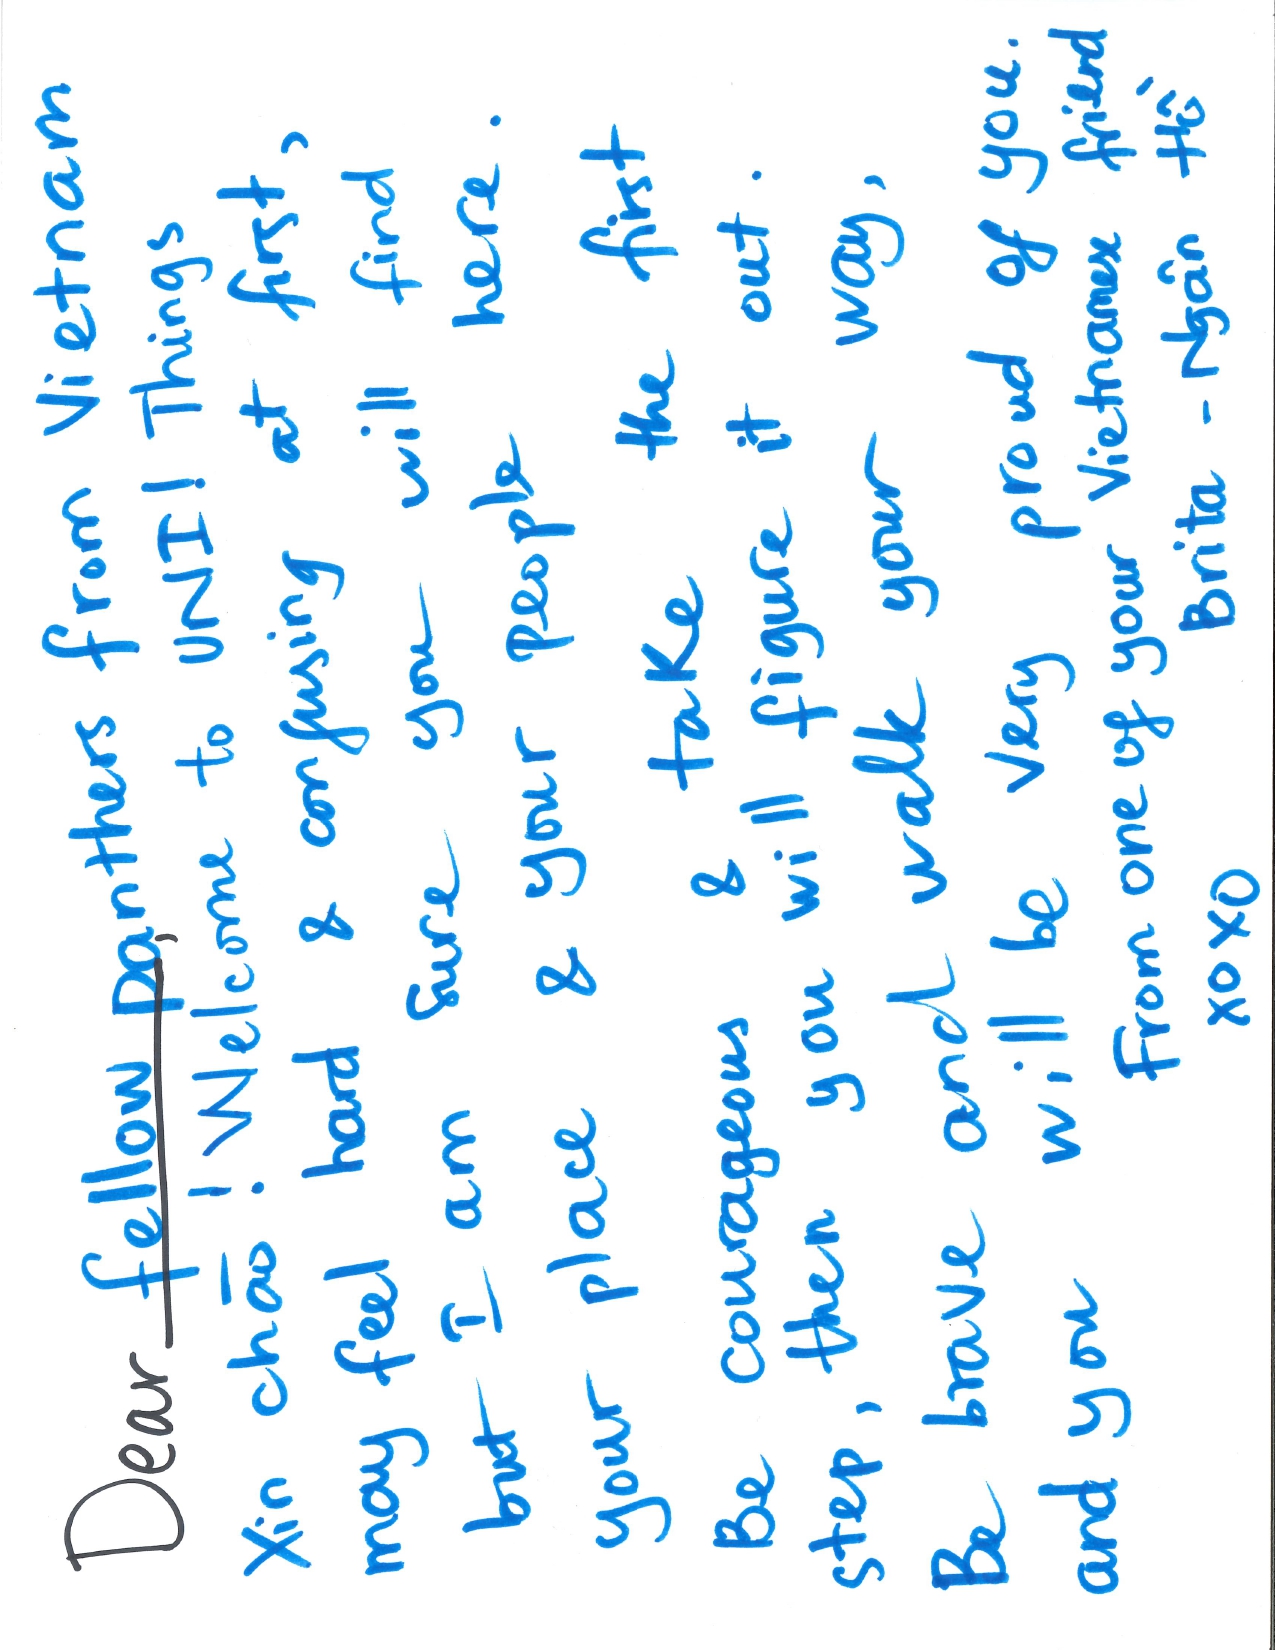 Dear fellow Panthers from Vietnam,
Xin chào! Welcome to UNI! Things
may feel hard & confusing at first,
but I am sure you will find
your place & your people here.
Be courageous & take the first
step, then you will figure it out.
Be brave and walk your way,
and you will be very proud of you.
From one of your Vietnamese friend
Brita - Ngân Hồ
XOXO